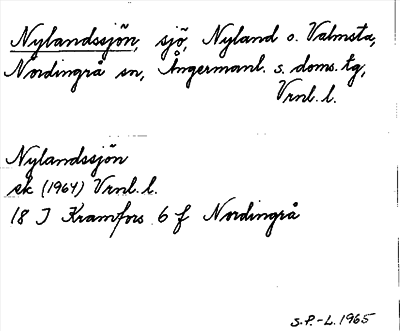 Nylandssjön, sjö, Nyland o. Valmsta,
Nordingrå sn, Ångermanl. s. doms. tg,
Vrnl. l.
Nylandssjön
ek (1964) Vrnl. l.
18 I Kramfors 6 f Nordingrå
S.P.-L. 1965